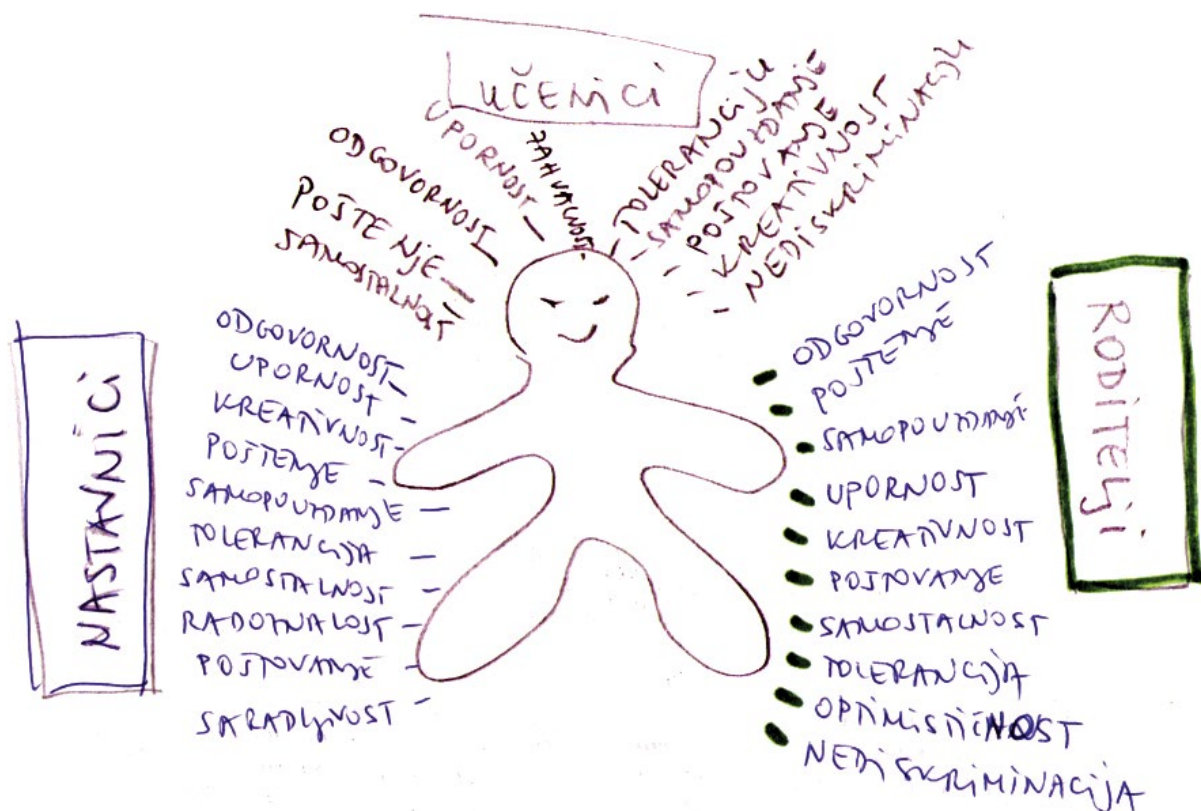 UČENiCi
SAMOSTALNOST
POŠTENjE
ODGOVORNOST
UPORNOST
ZAHVALNOST
TOLERANCiJU
SAMOPOUZDANJE
POŠTOVANJE
KREATiVNOST
NEDiSKRiMiNACiJU
NASTAVNiCi
ODGOVORNOST
UPORNOST
KREATiVNOST
POŠTENJE
SAMOPOUZDANJE
TOLERANCiJA
SAMOSTALNOST
RADOZNALOST
POŠTOVANJE
SARADLjiVOST
RODiTELji
ODGOVORNOST
POŠTENJE
SAMOPOUZDANJE
UPORNOST
KREATiVNOST
POŠTOVANJE
SAMOSTALNOST
TOLERANCiJA
OPTiMiSTiČNOST
NEDiSKRiMiNACiJA